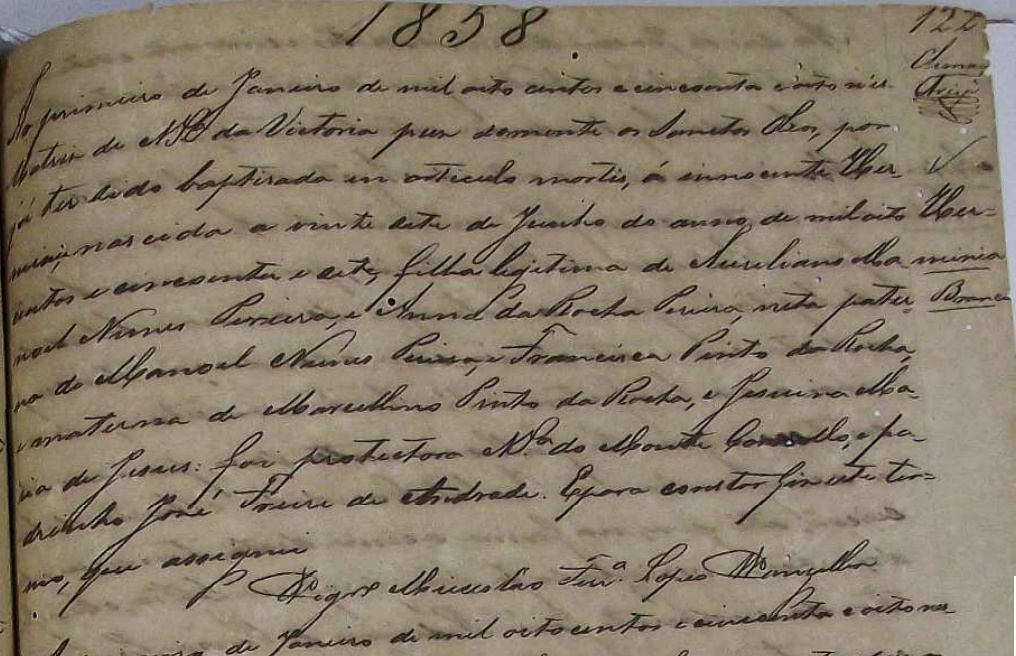 1858
122
Ao primeiro de Janeiro de mil oito centos e cincoenta e oito n'es
Matriz de N.S. da Victoria puz somente os Sanctos Oleos, por
já ter sido baptisada in articulo mortis, á innocente Her-
minia, nascida a vinte sete de Junho do anno de mil oito
centos e cincoenta e sete, filha legitima de Aureliano Ma-
noel Nunes Pereira, e Anna da Rocha Pereira, neta pater-
na de Manoel Nunes Pereira, e Francisca Pinto da Rocha,
e materna de Marcellino Pinto da Rocha, e Jesuina Ma-
ria de Jesus: foi protectora N.Sª do Monte Carmello, e pa-
drinho José Freire de Andrade. E para constar fiz este ter-
mo, que assignei
Her-
minia
Branca
O Vigrº Ferª Lopes
de Janeiro de mil oito centos e cincoenta e oito